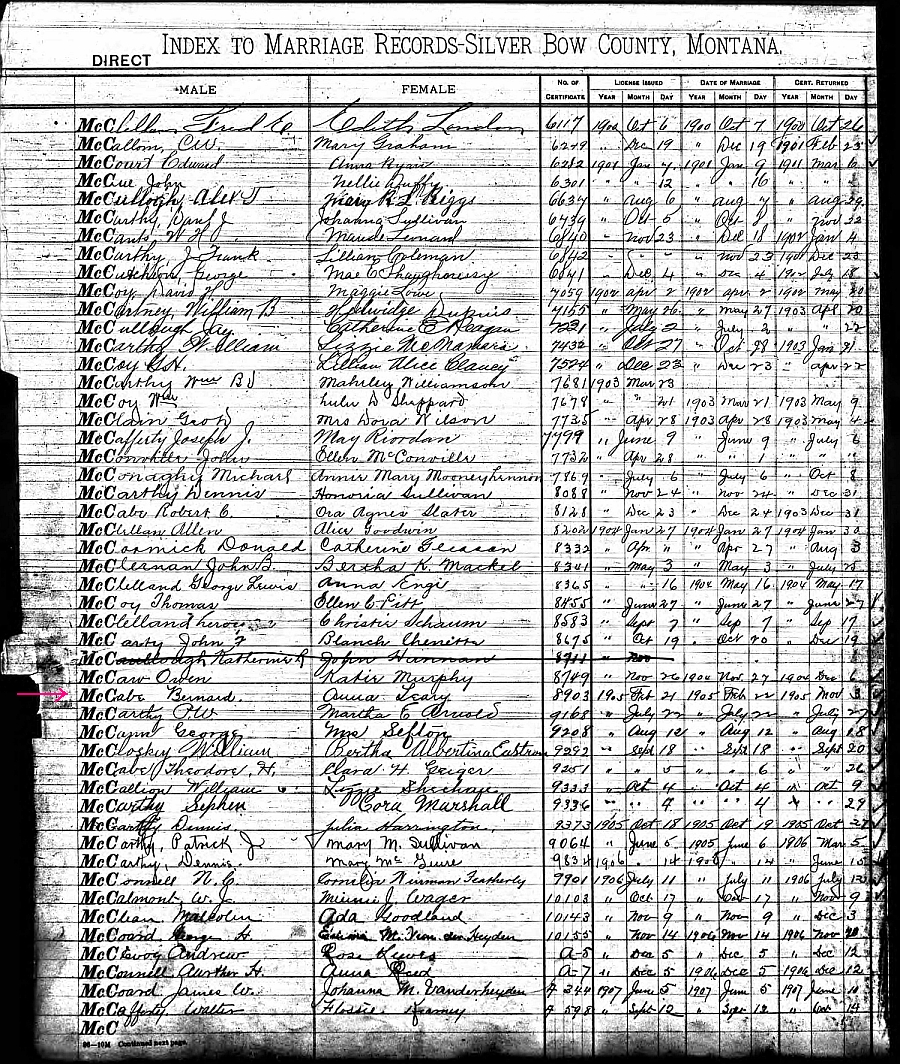 INDEX TO MARRIAGE RECORDS-SILVER BOW COUNTY, MONTANA.
DIRECT
MALE FEMALE NO. OF CERTIFICATE LICENSE ISSUED DATE OF MARRIAGE CERT. RETURNED
YEAR MONTH DAY YEAR MONTH DAY YEAR MONTH DAY
McClellan Fred E Edith London 6117 1900 Oct 6 1900 Oct 7 1900 Oct 26
McCallom, C.W. Mary Graham 6279 " Dec 19 " Dec 19 1901 Feb 23
McCourt Edward Anna Ryan 6282 1901 Jan 7 1901 Jan 9 1901 Mar 6
McCue John Nellie Duffy 6301 " " 12 " " 16 " "
McCullough Alex T 6634 " Aug 6 " Aug 7 " Aug 29
McCarthy, Dan'l J Johanna Sullivan " Oct 5 " Oct 8 " Nov 22
McCants, W. H. Maude Leonard " Nov 23 " Dec 18 1902 Jan 4
McCarthy, J Frank Lillian Coleman " Nov 23 1901 Dec 23
McCutcheon, George Mae C Shaughnessy " Dec 4 " Dec 4 1902 July 18
McCoy, David Maggie Lowe 7059 1902 Apr 2 1902 Apr 2 1902 May 20
McCartney, William B Dupuis 7155 " May 26 " May 27 1903 Apr 20
McCullough Jay Catherine E Reagan 7221 " July 2 " July 2 " " 22
McCarthy William Lizzie McManus 7432 " Oct 27 " Oct 28 1903 Jan 31
McCoy Lillian Alice Clancy 7524 " Dec 23 " Dec 23 " Apr 22
McCarthy Wm B Williamson 7681 1903 Mar 23
McCoy Wm Lulu D Sheppard 7678 " " 21 1903 Mar 21 1903 May 9
McClain Mrs Dora Kilson 7735 " Apr 28 1903 Apr 28 1903 May 4
McCafferty Joseph J. May Riordan 7799 " June 9 " June 9 " July 6
McConville John Ellen McConville 7732 " Apr 28 " " 1 " "
McConaghy Michael Annie Mary Mooney Lennon 7869 " July 6 " July 6 " Oct 8
McCarthy Dennis Honorica Sullivan 8088 " Nov 24 " Nov 24 " Dec 31
McCabe Robert C. Ora Agnes Slater 8128 " Dec 23 " Dec 24 1903 Dec 31
McClellan Allen Alice Goodwin 8202 1904 Jan 27 1904 Jan 27 1904 Jan 30
McCormick Donald Catherine Gleason 8332 " Apr " " Apr 27 " Aug 3
McClernan John B. Bertha K. Mackel 8341 " May 3 " May 3 " July 25
McClelland George Lewis Anna Enge 8365 " " 16 1904 May 16 1904 May 17
McCoy Thomas Ellen C Pitt 8455 " June 27 " June 27 " June 27
McClelland Christie Schaum 8583 " Sept 7 " Sep 7 " Sep 17
McCarty John F Blanch Cherrette 8675 " Oct 19 " Oct 20 " Dec 19
McCullough Katherine R John Hannan 8711 " Nov
McCaw Owen Katie Murphy 8749 " Nov 26 1904 Nov 27 1904 Dec 6
McCabe Bernard Anna Leary 8903 1905 Feb 21 1905 Feb 22 1905 Mar 3
McCarthy P.W. Martha E Arnold 9168 " July 22 " July 22 " July 27
McCann George Mrs Sefton 9208 " Aug 12 " Aug 12 " Aug 18
McCloskey William Bertha Albertina Eastrom 9292 " Sept 18 " Sept 18 " Sept 20
McCabe Theodore, H. Clara H. Geiger 9251 " " 5 " " 6 " " 26
McCallion William Lizzie Sheehan 9333 " Oct 4 " Oct 4 " Oct 9
McCarthy Stephen Cora Marshall 9336 " " 4 " " 4 " " 29
McCarthy Dennis Julia Harrington 9373 1905 Oct 18 1905 Oct 19 1905 Oct 27
McCarthy, Patrick J. Mary M. Sullivan 9064 " June 5 1905 June 6 1906 Mar 5
McCarthy, Dennis. Mary McGuire 9834 1906 " 14 1906 " 14 " June 15
McConnell N.C. Featherly 7901 1906 July 11 " July 11 1906 July 13
McCalmont, W.J. Minnie J Wager 10103 " Oct 17 " Oct 17 " Nov 9
McClean Malcolm Ada Goodland 10143 " Nov 9 " Nov 9 " Dec 3
McCoard George H. M. Van der Heyden 10155 " Nov 14 1906 Nov 14 1906 Nov 20
McCevoy Andrew Rose Reeves A-5 " Dec 5 " Dec 5 " Dec 12
McConnell Aurthur H. Anna Reed A-7 " Dec 5 1906 Dec 5 1906 Dec 12
McCoard James W. Johanna M. Vanderheyden A 344 1907 June 5 1907 June 5 1907 June 10
McCafferty Walter Flossie Kearney A 598 " Sept 12 " Sept 12 " Oct 14
McC
Continued next page.